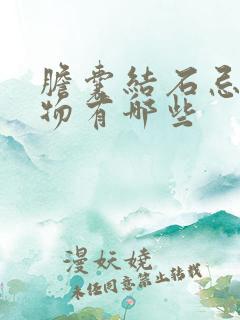 膽囊結石忌
物有哪些
漫妖嬈
未經同意禁止轉載